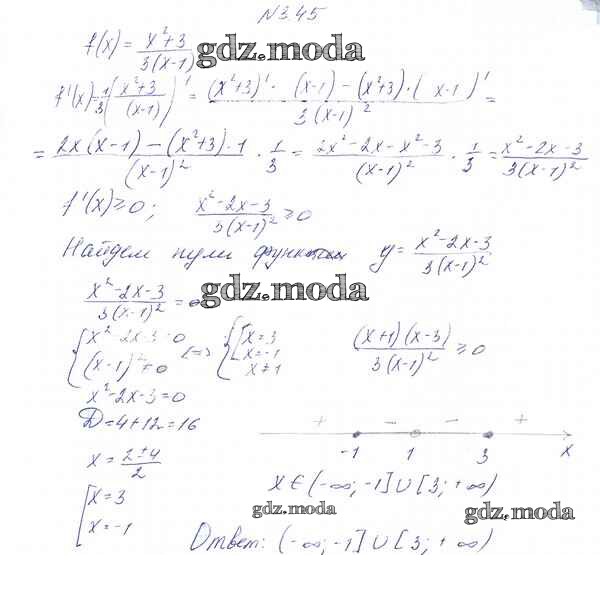 N 3.45
f(x) = x²+3 / 3(x-1)
gdz.moda
f'(x) = 1/3 (x²+3 / (x-1))' = (x²+3)' · (x-1) - (x²+3) · (x-1)' / 3(x-1)² =
= 2x(x-1) - (x²+3)·1 / (x-1)² · 1/3 = 2x²-2x-x²-3 / (x-1)² · 1/3 = x²-2x-3 / 3(x-1)²
f'(x) ≥ 0; x²-2x-3 / 3(x-1)² ≥ 0
Найдем нули функции y = x²-2x-3 / 3(x-1)²
x²-2x-3 / 3(x-1)² = 0
gdz.moda
{ x²-2x-3=0 (x-1)²≠0 <=> { [ x=3 x=-1 x≠1
(x+1)(x-3) / 3(x-1)² ≥ 0
x²-2x-3=0
D=4+12=16
+ - - +
-1 1 3 x
x = 2±4 / 2
x ∈ (-∞; -1] ∪ [3; +∞)
[ x=3 x=-1
gdz.moda
gdz.moda
Ответ: (-∞; -1] ∪ [3; +∞)